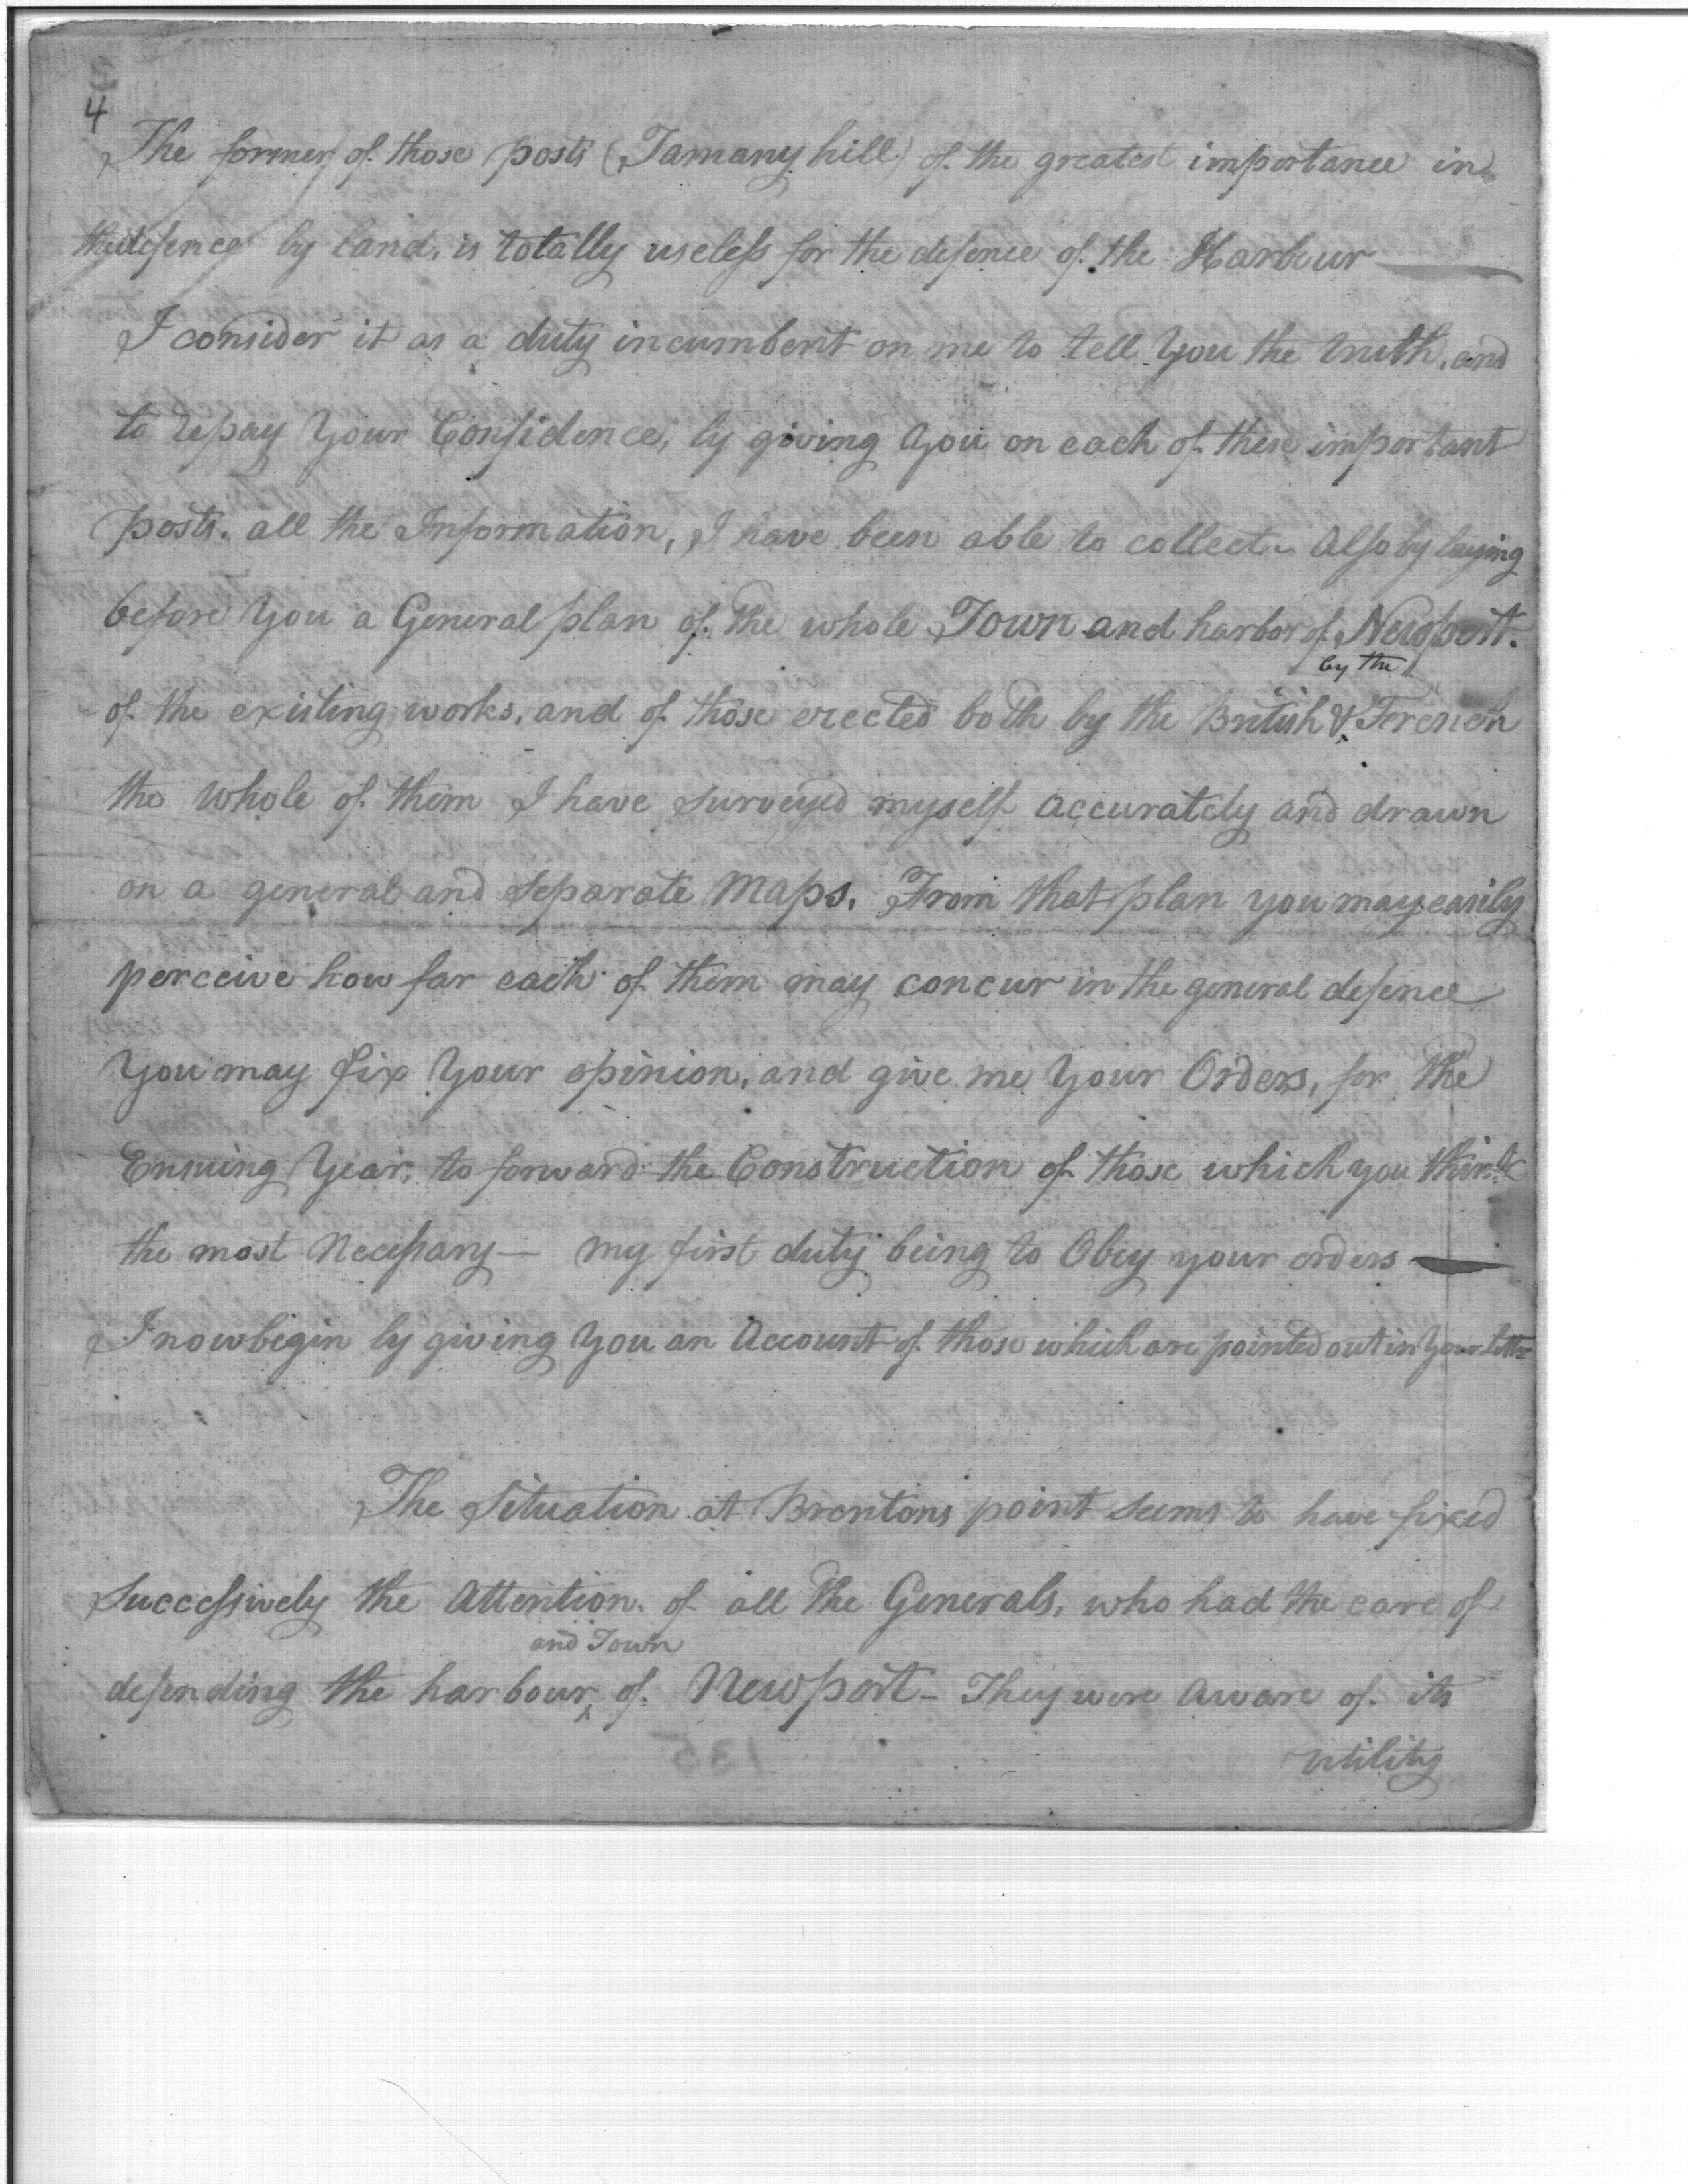 4
The former of those posts (Tamany hill) of the greatest importance in
the defence by land, is totally useless for the defence of the Harbour —
I consider it as a duty incumbent on me to tell You the truth, and
to repay Your Confidence, by giving You on each of these important
posts. all the Information, I have been able to collect - Also by laying
before You a General plan of the whole Town and harbor of Newport.
by the
of the existing works, and of those erected both by the British & French
the whole of them I have surveyed myself accurately and drawn
on a general and separate Maps. From that plan you may easily
perceive how far each of them may concur in the general defence
You may fix Your opinion, and give me Your Orders, for the
Ensuing Year, to forward the Construction of those which you think
the most Necessary — my first duty being to Obey your orders —
I now begin by giving You an Account of those which are pointed out in Your letter
The Situation at Brentons point seems to have fixed
Successively the Attention of all the Generals, who had the care of
and Town
defending the harbour ^ of Newport - They were aware of its
utility
135